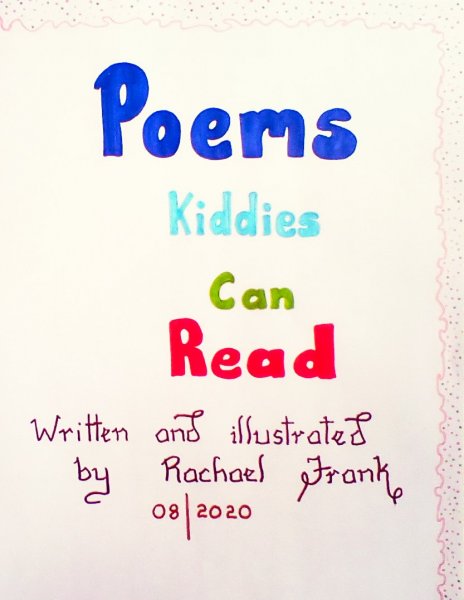 Poems
Kiddies
Can
Read
Written and illustrated
by Rachael Frank
08|2020